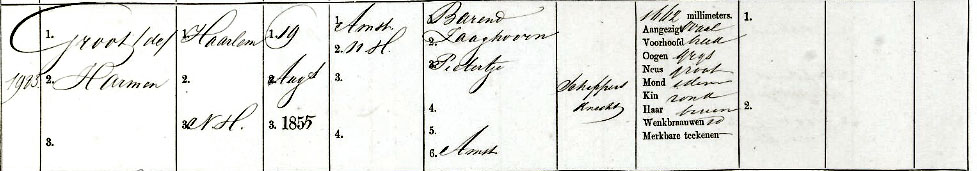 1903.
1. Groot (de)
2. Harmen
3.
1. Haarlem
2.
3. N.H.
1. 19
2. Augt
3. 1855
1. Amst.
2. N.H.
3.
4.
1. Barend
2.
3. Pietertje
4.
5.
6. Amst.
Schippers
Knecht
1662 millimeters.
Aangezigt ovaal
Voorhoofd
Oogen grys
Neus groot
Mond idem
Kin rond
Haar bruin
Wenkbraauwen id
Merkbare teekenen
1.
2.